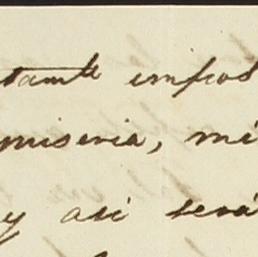 tante impos
miseria, mi
y asi será